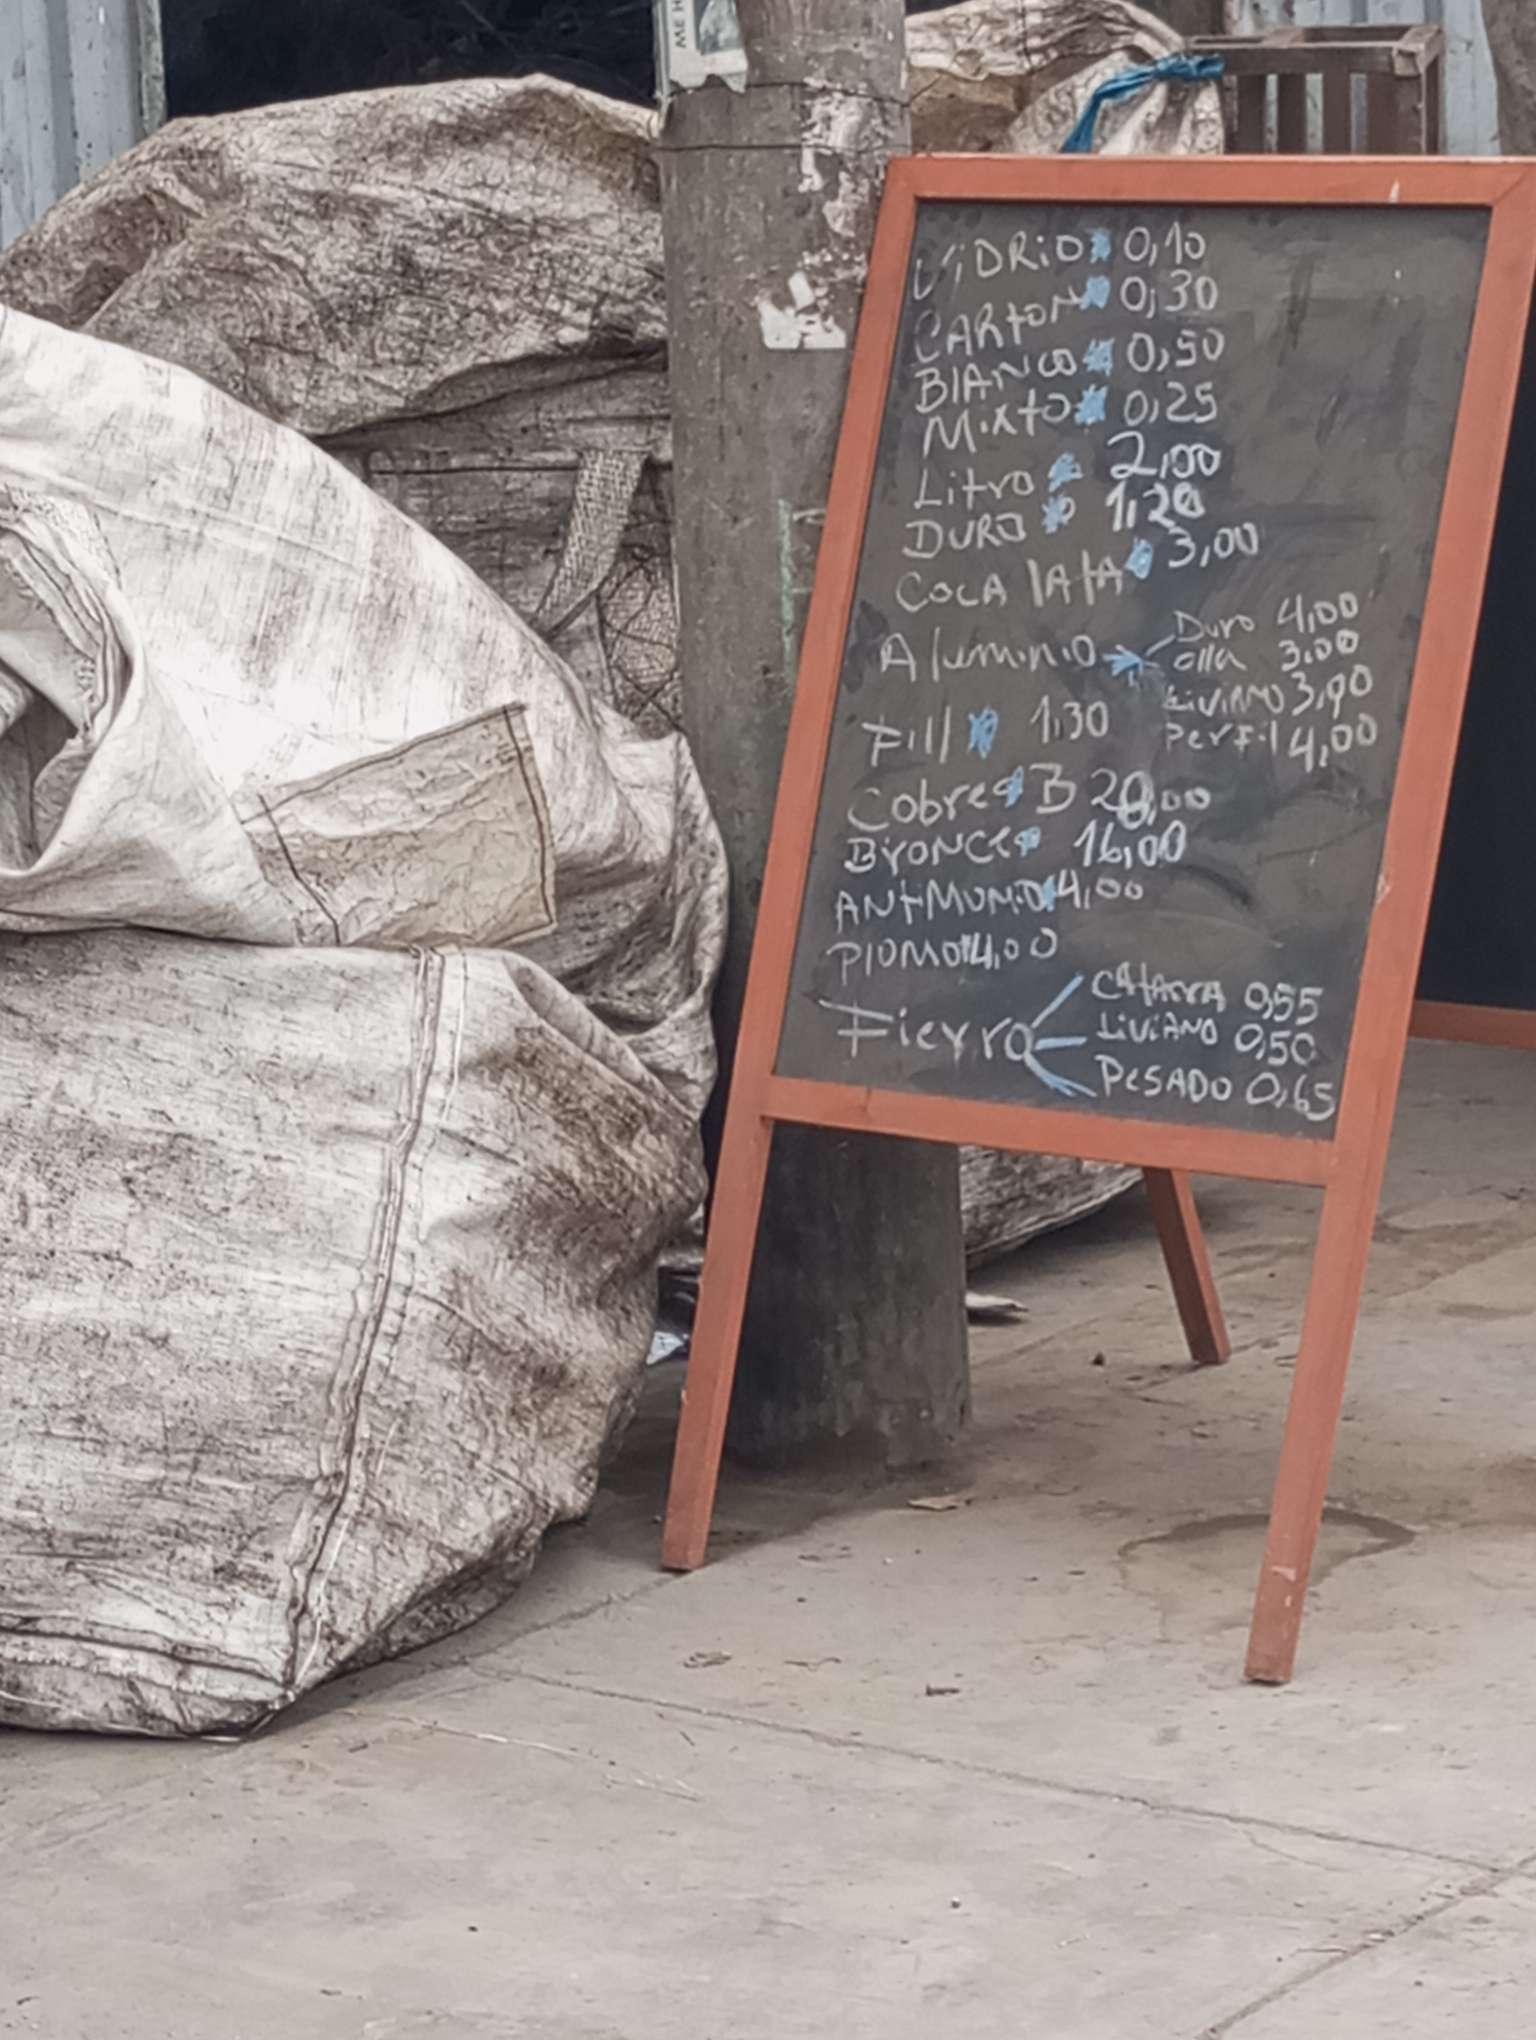 ME H
VIDRIO 0,10
CARTON 0,30
BLANCO 0,50
Mixto 0,25
Litro 2,00
DURO 1,20
COCA lAtA 3,00
Aluminio Duro 4,00
olla 3.00
LiviANO 3,90
PerFil 4,00
Fill 1,30
Cobre B 20,00
BroNCe 16,00
ANtiMONiO 4,00
PlOMO 4,00
Fierro CAtArrA 0,55
LiviANO 0,50
PeSADO 0,65